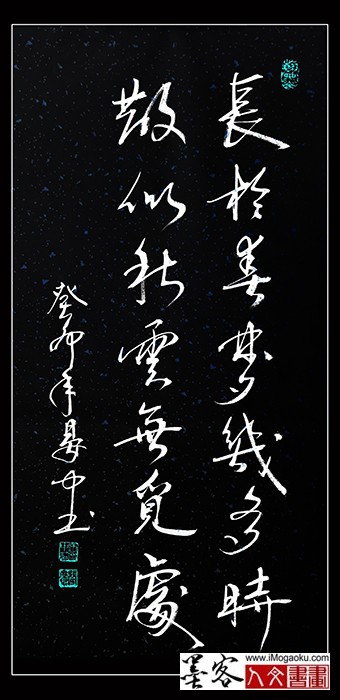 長於春夢幾多時
散似秋雲無覓處
癸卯年中书
墨客
www.iMogaoku.com
人文書畫